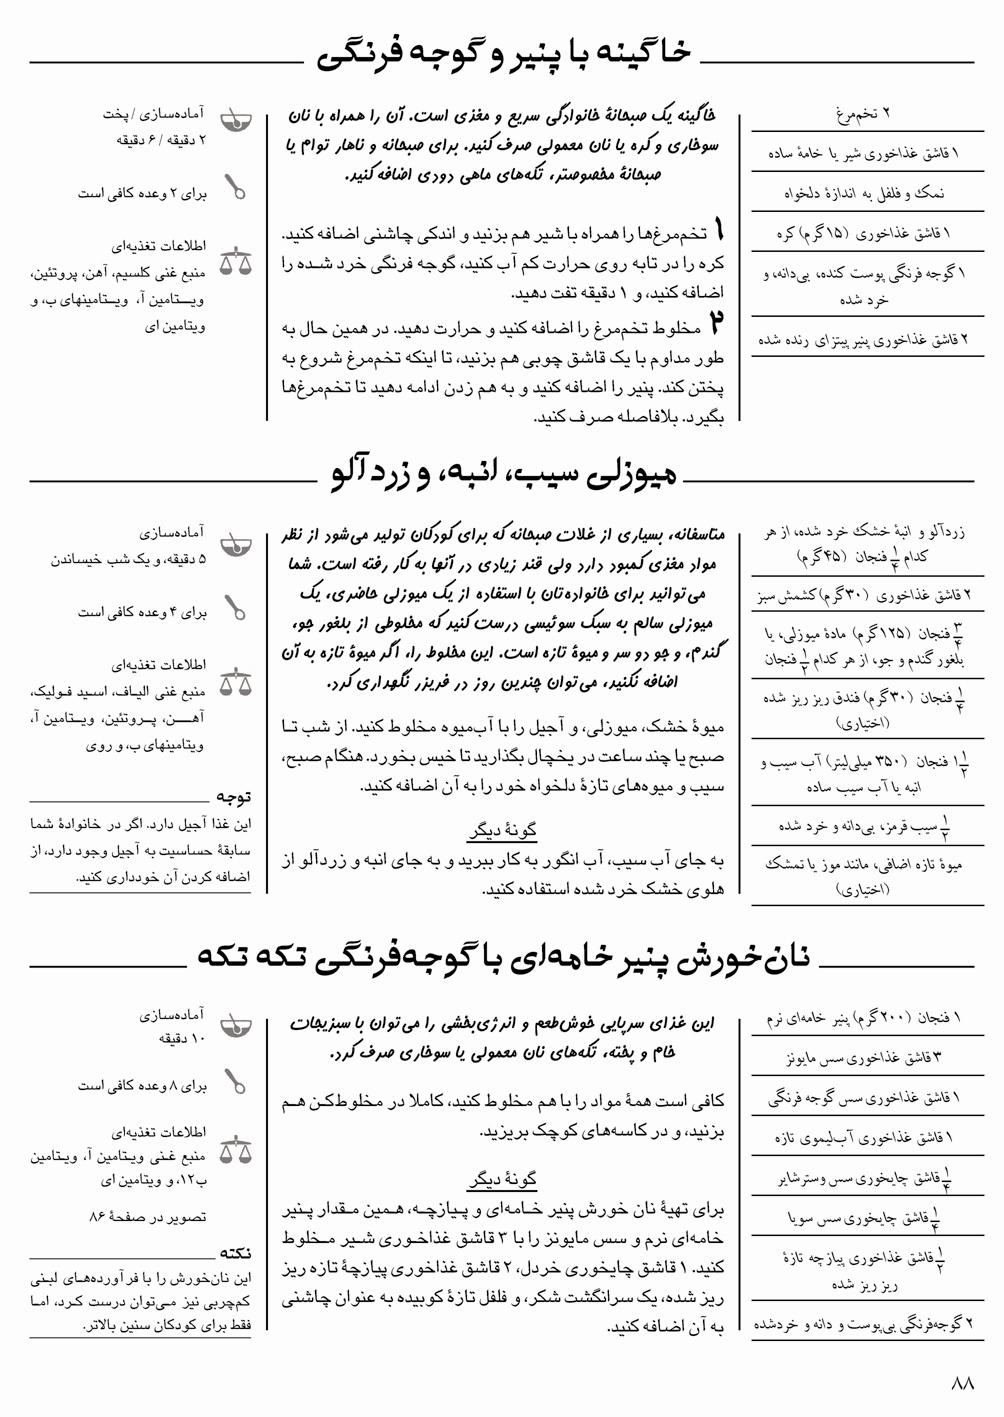 خاگینه با پنیر و گوجه فرنگی
۲ تخم‌مرغ
۱ قاشق غذاخوری شیر یا خامهٔ ساده
نمک و فلفل به اندازهٔ دلخواه
۱ قاشق غذاخوری (۱۵گرم) کره
۱ گوجه فرنگی پوست کنده، بی‌دانه، و
خرد شده
۲ قاشق غذاخوری پنیر پیتزای رنده شده
خاگینه یک صبحانهٔ خانوادگی سریع و مغذی است. آن را همراه با نان
سوخاری و کره یا نان معمولی صرف کنید. برای صبحانه و ناهار توام یا
صبحانهٔ مخصوصتر، تکه‌های ماهی دودی اضافه کنید.
۱ تخم‌مرغ‌ها را همراه با شیر هم بزنید و اندکی چاشنی اضافه کنید.
کره را در تابه روی حرارت کم آب کنید، گوجه فرنگی خرد شده را
اضافه کنید، و ۱ دقیقه تفت دهید.
۲ مخلوط تخم‌مرغ را اضافه کنید و حرارت دهید. در همین حال به
طور مداوم با یک قاشق چوبی هم بزنید، تا اینکه تخم‌مرغ شروع به
پختن کند. پنیر را اضافه کنید و به هم زدن ادامه دهید تا تخم‌مرغ‌ها
بگیرد. بلافاصله صرف کنید.
آماده‌سازی / پخت
۲ دقیقه / ۶ دقیقه
برای ۲ وعده کافی است
اطلاعات تغذیه‌ای
منبع غنی کلسیم، آهن، پروتئین،
ویتامین آ، ویتامینهای ب، و
ویتامین ای
میوزلی سیب، انبه، و زردآلو
زردآلو و انبهٔ خشک خرد شده، از هر
کدام ۱/۴ فنجان (۴۵گرم)
۲ قاشق غذاخوری (۳۰گرم) کشمش سبز
۳/۴ فنجان (۱۲۵گرم) مادهٔ میوزلی، یا
بلغور گندم و جو، از هر کدام ۱/۲ فنجان
۱/۴ فنجان (۳۰گرم) فندق ریز ریز شده
(اختیاری)
۱ ۱/۲ فنجان (۳۵۰ میلی‌لیتر) آب سیب و
انبه یا آب سیب ساده
۱/۲ سیب قرمز، بی‌دانه و خرد شده
میوهٔ تازه اضافی، مانند موز یا تمشک
(اختیاری)
متاسفانه، بسیاری از غلات صبحانه که برای کودکان تولید می‌شود از نظر
مواد مغذی کمبود دارد ولی قند زیادی در آنها به کار رفته است. شما
می‌توانید برای خانواده‌تان با استفاده از یک میوزلی حاضری، یک
میوزلی سالم به سبک سوئیسی درست کنید که مخلوطی از بلغور جو،
گندم، و جو دو سر و میوهٔ تازه است. این مخلوط را، اگر میوهٔ تازه به آن
اضافه نکنید، می‌توان چندین روز در فریزر نگهداری کرد.
میوهٔ خشک، میوزلی، و آجیل را با آب‌میوه مخلوط کنید. از شب تا
صبح یا چند ساعت در یخچال بگذارید تا خیس بخورد. هنگام صبح،
سیب و میوه‌های تازهٔ دلخواه خود را به آن اضافه کنید.
گونهٔ دیگر
به جای آب سیب، آب انگور به کار ببرید و به جای انبه و زردآلو از
هلوی خشک خرد شده استفاده کنید.
آماده‌سازی
۵ دقیقه، و یک شب خیساندن
برای ۴ وعده کافی است
اطلاعات تغذیه‌ای
منبع غنی الیاف، اسید فولیک،
آهن، پروتئین، ویتامین آ،
ویتامینهای ب، و روی
توجه
این غذا آجیل دارد. اگر در خانوادهٔ شما
سابقهٔ حساسیت به آجیل وجود دارد، از
اضافه کردن آن خودداری کنید.
نان‌خورش پنیر خامه‌ای با گوجه‌فرنگی تکه تکه
۱ فنجان (۲۰۰گرم) پنیر خامه‌ای نرم
۳ قاشق غذاخوری سس مایونز
۱ قاشق غذاخوری سس گوجه فرنگی
۱ قاشق غذاخوری آب‌لیموی تازه
۱/۴ قاشق چایخوری سس وسترشایر
۱/۴ قاشق چایخوری سس سویا
۱/۲ قاشق غذاخوری پیازچه تازهٔ
ریز ریز شده
۲ گوجه‌فرنگی بی‌پوست و دانه و خردشده
این غذای سرپایی خوش‌طعم و انرژی‌بخشی را می‌توان با سبزیجات
خام و پخته، تکه‌های نان معمولی یا سوخاری صرف کرد.
کافی است همهٔ مواد را با هم مخلوط کنید، کاملا در مخلوط‌کن هم
بزنید، و در کاسه‌های کوچک بریزید.
گونهٔ دیگر
برای تهیهٔ نان خورش پنیر خامه‌ای و پیازچه، همین مقدار پنیر
خامه‌ای نرم و سس مایونز را با ۳ قاشق غذاخوری شیر مخلوط
کنید. ۱ قاشق چایخوری خردل، ۲ قاشق غذاخوری پیازچهٔ تازه ریز
ریز شده، یک سرانگشت شکر، و فلفل تازهٔ کوبیده به عنوان چاشنی
به آن اضافه کنید.
آماده‌سازی
۱۰ دقیقه
برای ۸ وعده کافی است
اطلاعات تغذیه‌ای
منبع غنی ویتامین آ، ویتامین
ب۱۲، و ویتامین ای
تصویر در صفحهٔ ۸۶
نکته
این نان‌خورش را با فرآورده‌های لبنی
کم‌چربی نیز می‌توان درست کرد، اما
فقط برای کودکان سنین بالاتر.
۸۸